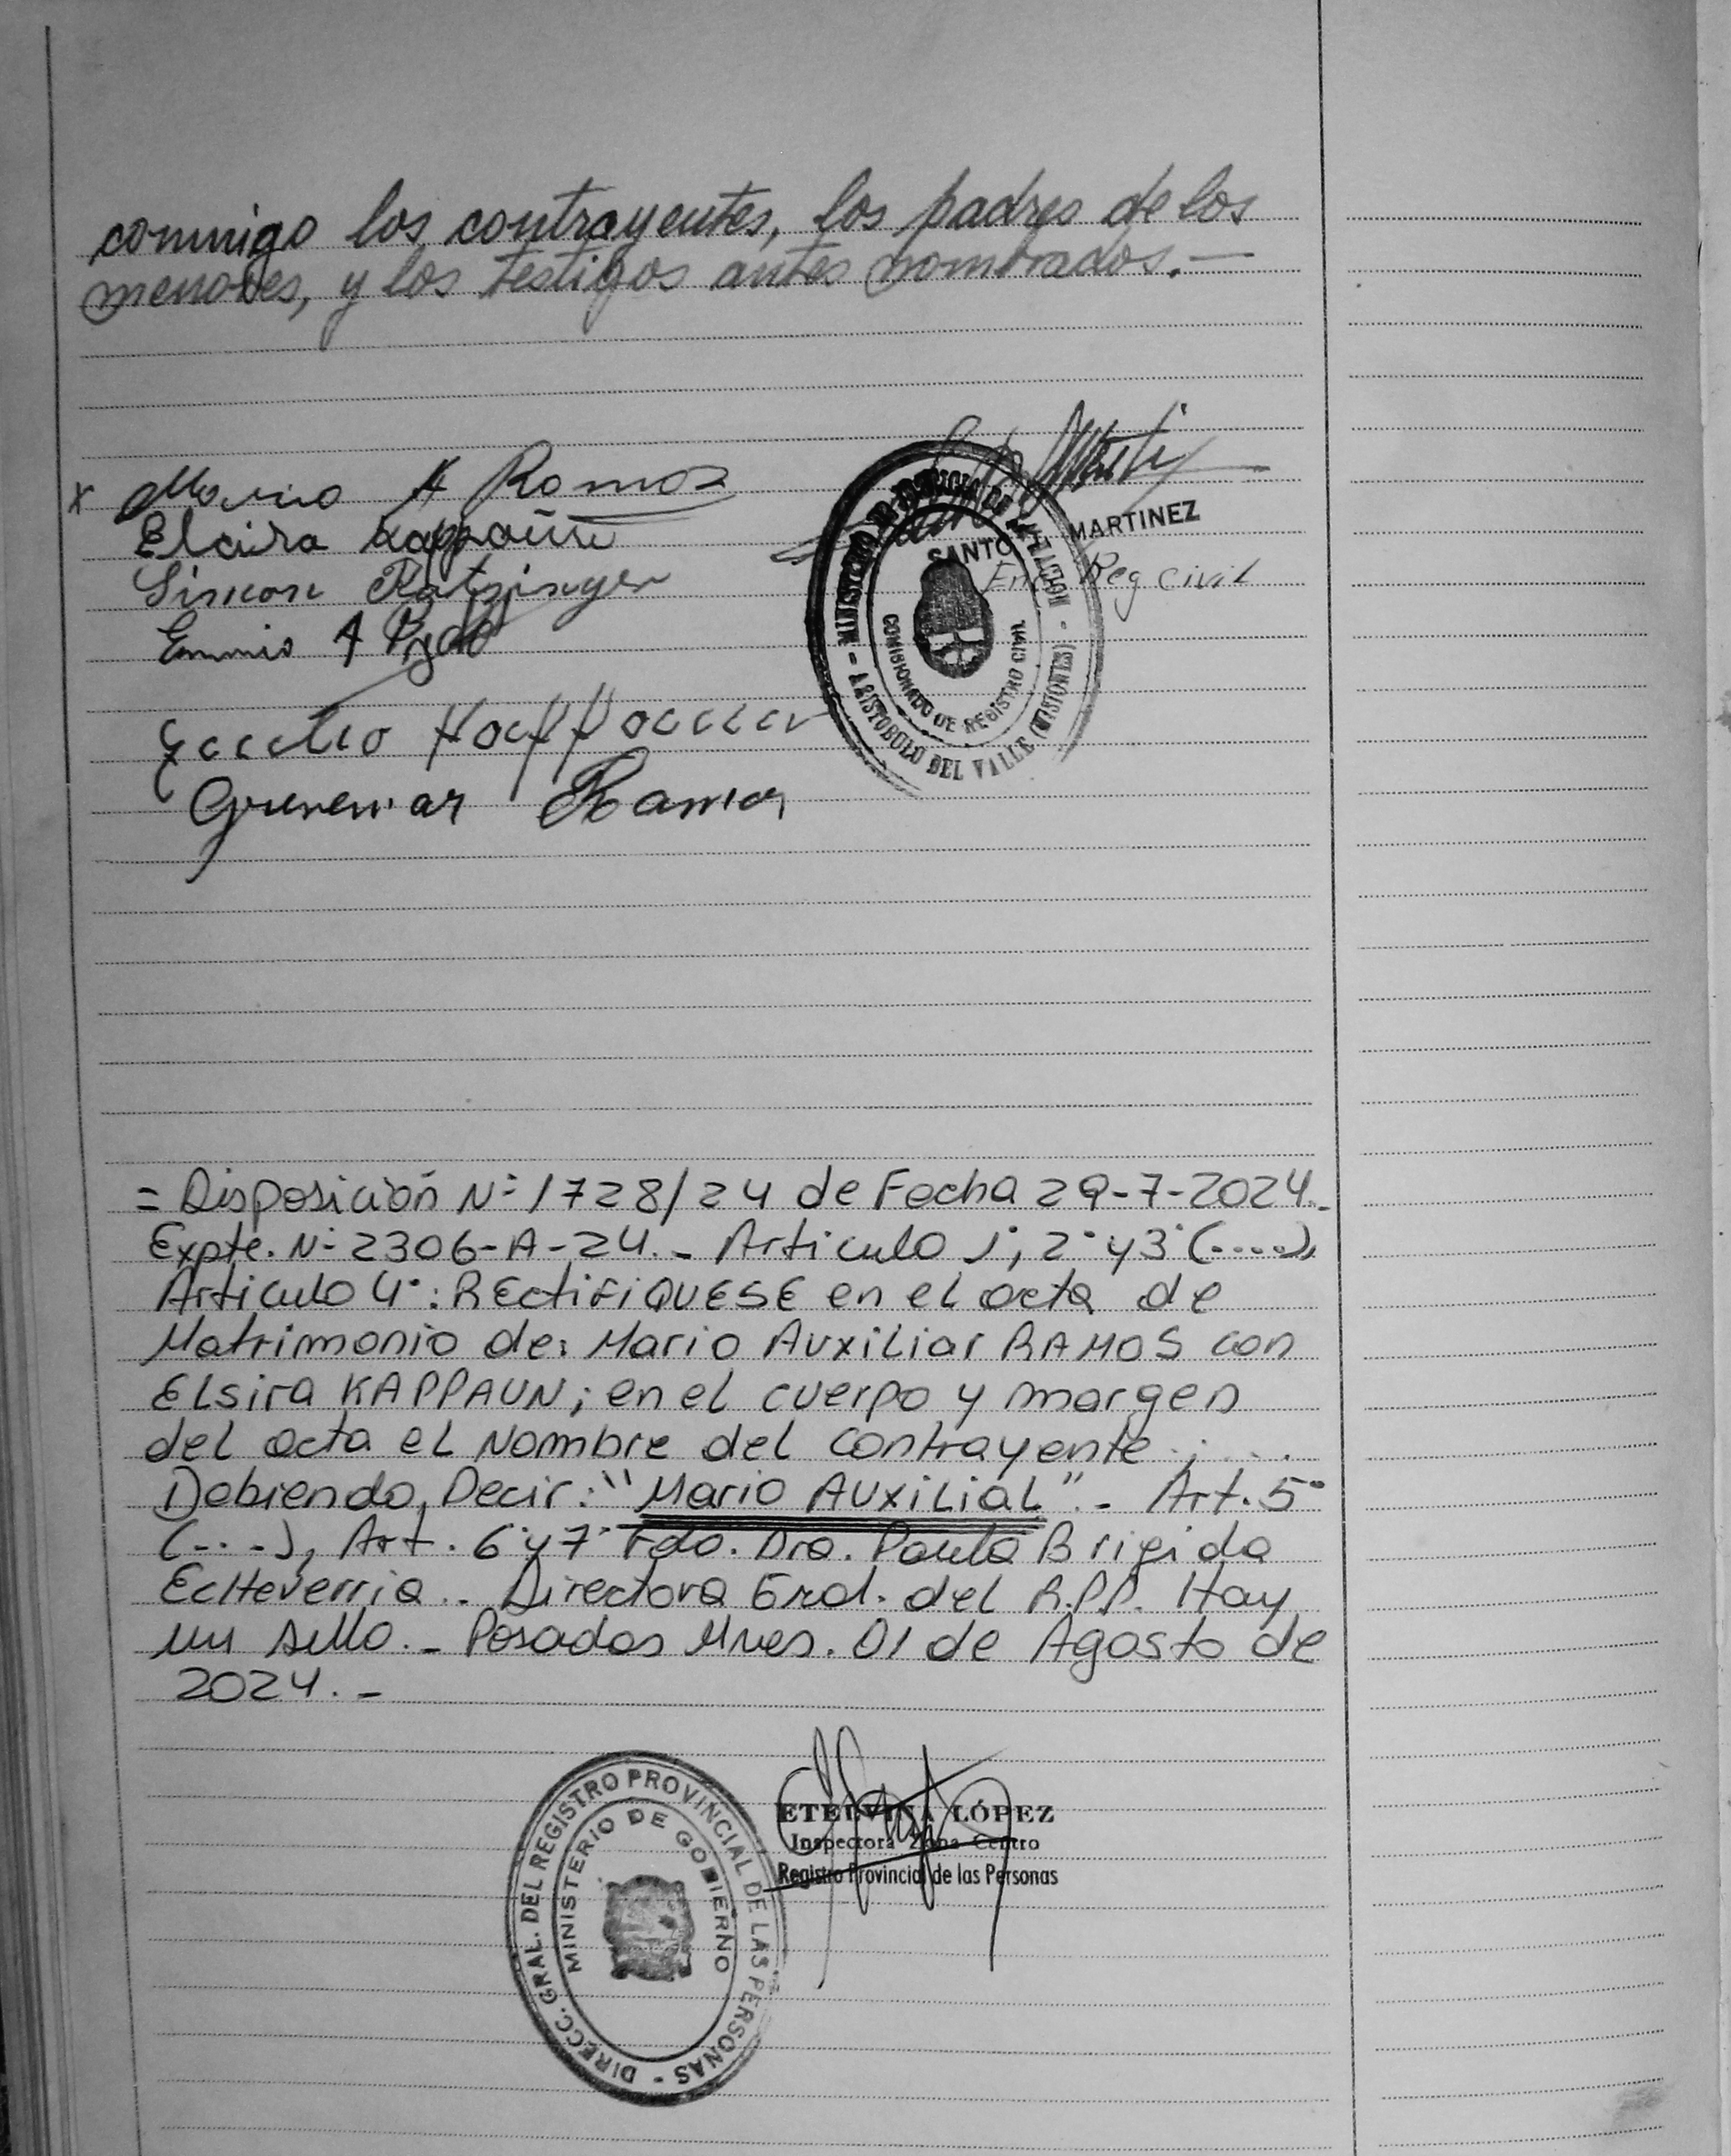 conmigo los contrayentes, los padres de los
menores, y los testigos antes nombrados.—
x Mario A Ramos
Elcira Kappaun
Simon Ratzinger
SANTO MARTINEZ
Enc Reg civil
MINISTERIO DE JUSTICIA DE LA NACION - ARISTOBULO DEL VALLE (MISIONES) -
COMISIONADO DE REGISTRO CIVIL
Ramos
= Disposición Nº 1728/24 de Fecha 29-7-2024.-
Expte. Nº 2306-A-24.- Articulo 1º, 2º y 3º (....),
Articulo 4º: RECtiFiQUESE en el acta de
Matrimonio de: Mario Auxiliar RAMOS con
ELsira KAPPAUN; en el cuerpo y margen
del acta el Nombre del contrayente ;....
Debiendo, Decir: "Mario AUxiLiaL".- Art. 5º
(...), Art. 6º y 7º Fdo. Dra. Paula Brigida
Echeverria.- Directora Gral. del R.P.P. Hay
un sello.- Posadas Mnes. 01 de Agosto de
2024.-
ETELVINA LÓPEZ
Inspectora Zona Centro
Registro Provincial de las Personas
DIRECC. GRAL. DEL REGISTRO PROVINCIAL DE LAS PERSONAS -
MINISTERIO DE GOBIERNO